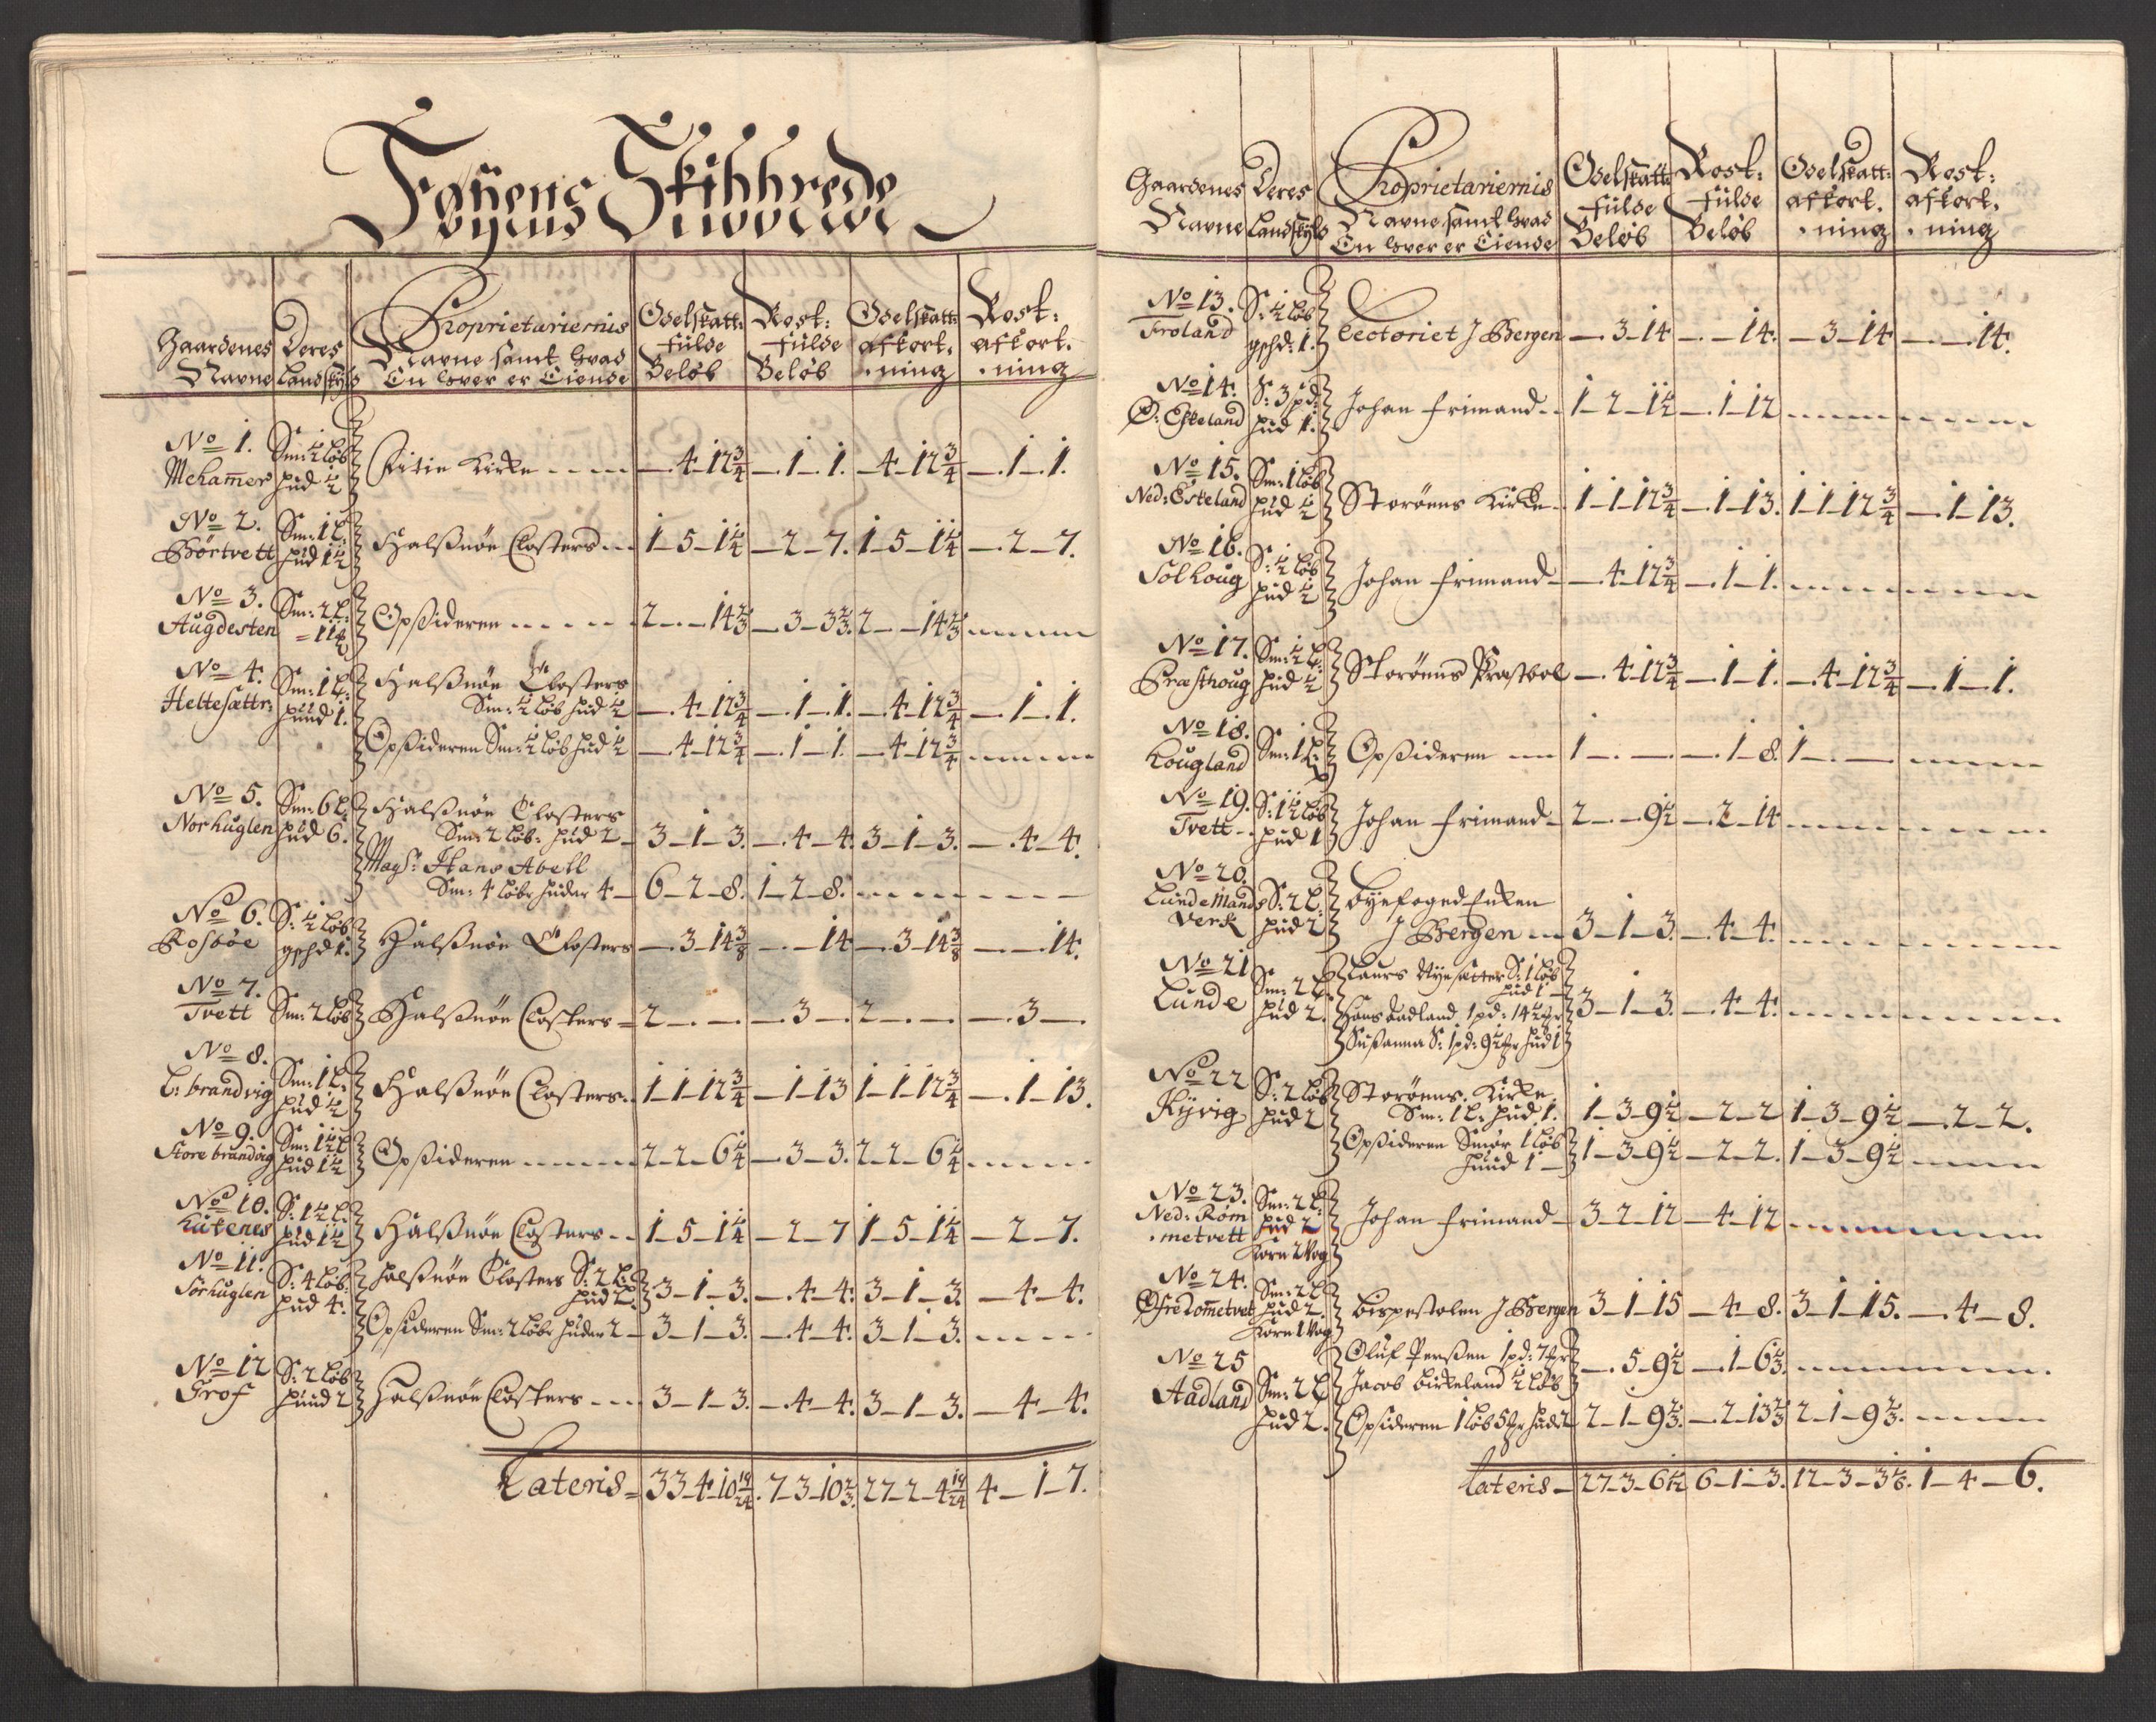 Føyens Skibbrede
Gaardenes Navne | Deres Landskyld | Proprietariernis Navne samt hvad En hver er Eiende | Odelskatt: fulde Beløb | Rost: fulde Beløb | Odelskatt: afkort. ning | Rost: afkort. ning
No 1. Mehamer | Sm: ½ løb hud ½ | Fitie Kirke | — 4 - 12¾ | — 1 - 1. | — 4 - 12¾ | — 1 - 1.
No 2. Børtvett | Sm: 1 l: hud 1½ | Halsnøe Closters | 1 - 5 - 1¼ | — 2 - 7. | 1 - 5 - 1¼ | — 2 - 7.
No 3. Augdesten | Sm: 2 l: | Opsideren | 2 - — 14⅔ | — 3 - 3⅔. | 2 - — 14⅔
No 4. Heltesættr: | Sm: 1 l: hund 1. | Halsnøe Closters
Sm: ½ løb hud ½ | — 4 - 12¾ | — 1 - 1. | — 4 - 12¾ | — 1 - 1.
Opsideren Sm: ½ løb hud ½ | — 4 - 12¾ | — 1 - 1. | — 4 - 12¾
No 5. Norhuglen | Sm: 6 l: hud 6. | Halsnøe Closters
Sm: 2 løb: hud 2 | 3 - 1 - 3. | — 4 - 4. | 3 - 1 - 3. | — 4 - 4.
Mags: Hans Abell
Sm: 4 løber huder 4 | 6 - 2 - 8. | 1 - 2 - 8.
No 6. Rosbøe | S: ½ løb gschd 1. | Halsnøe Closters | — 3 - 14⅜ | — — 14 | — 3 - 14⅜ | — — 14.
No 7. Tvett | Sm: 2 løb | Halsnøe Closters | 2 - — | — 3 — | 2 - — | — 3 —
No 8. L: brandvig | Sm: 1 l: hud ½ | Halsnøe Closters | 1 - 1 - 12¾ | — 1 - 13 | 1 - 1 - 12¾ | — 1 - 13.
No 9. Store brandvig | Sm: 1½ l hud 1½ | Opsideren | 2 - 2 - 6¼ | — 3 - 3. | 2 - 2 - 6¼
No 10. Kutenes | S: 1½ l: hud 1½ | Halsnøe Closters | 1 - 5 - 1¼ | — 2 - 7 | 1 - 5 - 1¼ | — 2 - 7.
No 11. Sørhuglen | S: 4 løb: hud 4. | Halsnøe Closters S: 2 l: hud 2. | 3 - 1 - 3. | — 4 - 4. | 3 - 1 - 3. | — 4 - 4.
Opsideren Sm: 2 løbr huder 2 | 3 - 1 - 3. | — 4 - 4. | 3 - 1 - 3.
No 12 Grof | S: 2 løb hund 2 | Halsnøe Closters | 3 - 1 - 3. | — 4 - 4. | 3 - 1 - 3. | — 4 - 4.
Lateris | 33 - 4 - 10 19/24. | 7 - 3 - 10⅔. | 27 - 2 - 4 19/24 | 4 - 1 - 7.
Gaardenes Navne | Deres Landskyld | Proprietariernis Navne samt hvad En hver er Eiende | Odelskatt: fulde Beløb | Rost: fulde Beløb | Odelskatt: afkort. ning | Rost: afkort. ning
No 13. Froland | S: ½ løb gschd: 1. | Lectoriet J Bergen | — 3 - 14 | — — 14. | — 3 - 14 | — — 14.
No 14. Ø: Eskeland | S: 3 pd: hud 1. | Johan Frimand | 1 - 2 - 1½ | — 1 - 12
No 15. Ned: Eskeland | Sm: 1 løb hud ½ | Storøens Kirke | 1 - 1 - 12¾ | — 1 - 13. | 1 - 1 - 12¾ | — 1 - 13.
No 16. Solhoug | S: ½ løb hud ½ | Johan Frimand | — 4 - 12¾ | — 1 - 1.
No 17. Præsthoug | Sm: ½ l: hud ½ | Storøens Præstbol | — 4 - 12¾ | — 1 - 1. | — 4 - 12¾ | — 1 - 1.
No 18. Hougland | Sm: 1 l: | Opsideren | 1 - — | — 1 - 8. | 1 - —
No 19. Tvett | S: 1½ løb hud 1 | Johan Frimand | 2 - — 9½ | — 2 - 14
No 20. Lunde Mands Verk | S: 2 l: hud 2 | Byefoged Enken
J Bergen | 3 - 1 - 3. | — 4 - 4.
No 21 Lunde | Sm: 2 l: hud 2. | Laurs Nysætter S: 1 løb
hud 1
Hans Aadland 1 pd: 14½ | 3 - 1 - 3. | — 4 - 4.
Susanna S: 1 pd: 9½ hud 1
No 22 Kyvig | S: 2 løb hud 2 | Storøens Kirke
Sm: 1 l: hud 1. | 1 - 3 - 9½ | — 2 - 2 | 1 - 3 - 9½ | — 2 - 2.
Opsideren Smør 1 løb
hund 1 | 1 - 3 - 9½ | — 2 - 2. | 1 - 3 - 9½
No 23. Ned: Røm metvett | Sm: 2 l: hud 2 Korn 2 Vog | Johan Frimand | 3 - 2 - 12 | — 4 - 12
No 24. Øfre Dometvet | Sm: 2 l hud 2. Korn 1 Vog | Bispestolen J Bergen | 3 - 1 - 15 | — 4 - 8. | 3 - 1 - 15. | — 4 - 8.
No 25 Aadland | Sm: 2 l hud 2. | Oluf Penssen 1 pd: 7
Jacob Birkeland ½ løb | — 5 - 9½ | — 1 - 6⅔.
Opsideren 1 løb 5 hud 2 | 2 - 1 - 9⅔. | — 2 - 13⅔ | 2 - 1 - 9⅔.
Lateris | 27 - 3 - 6½ | 6 - 1 - 3. | 12 - 3 - 3⅙. | 1 - 4 - 6.